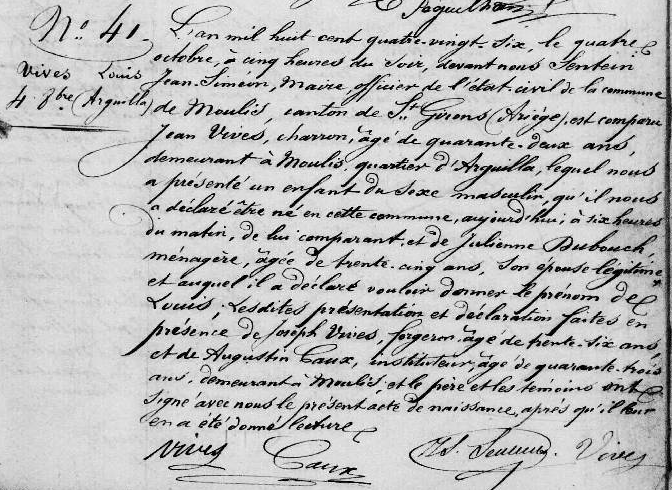 N° 41.
Vives Louis
4 8bre (Arguilla)
L'an mil huit cent quatre-vingt-six, le quatre
octobre, à cinq heures du soir, devant nous Sentein
Jean-Siméon, Maire, officier de l'état-civil de la commune
de Moulis, canton de St Girons (Ariège), est comparu
Jean Vives, charron, âgé de quarante-deux ans,
demeurant à Moulis, quartier d'Arguilla, lequel nous
a présenté un enfant du sexe masculin, qu'il nous
a déclaré être né en cette commune, aujourd'hui, à six heures
du matin, de lui comparant et de Julienne Dubouch,
ménagère, âgée de trente-cinq ans, son épouse légitime
et auquel il a déclaré vouloir donner le prénom de
Louis; Lesdites présentation et déclaration faites en
présence de Joseph Vives, forgeron, âgé de trente-six ans,
et de Augustin Caux, instituteur, âgé de quarante-trois
ans, demeurant à Moulis; et le père et les témoins ont
signé avec nous le présent acte de naissance, après qu'il leur
en a été donné lecture
Vives Caux Vives